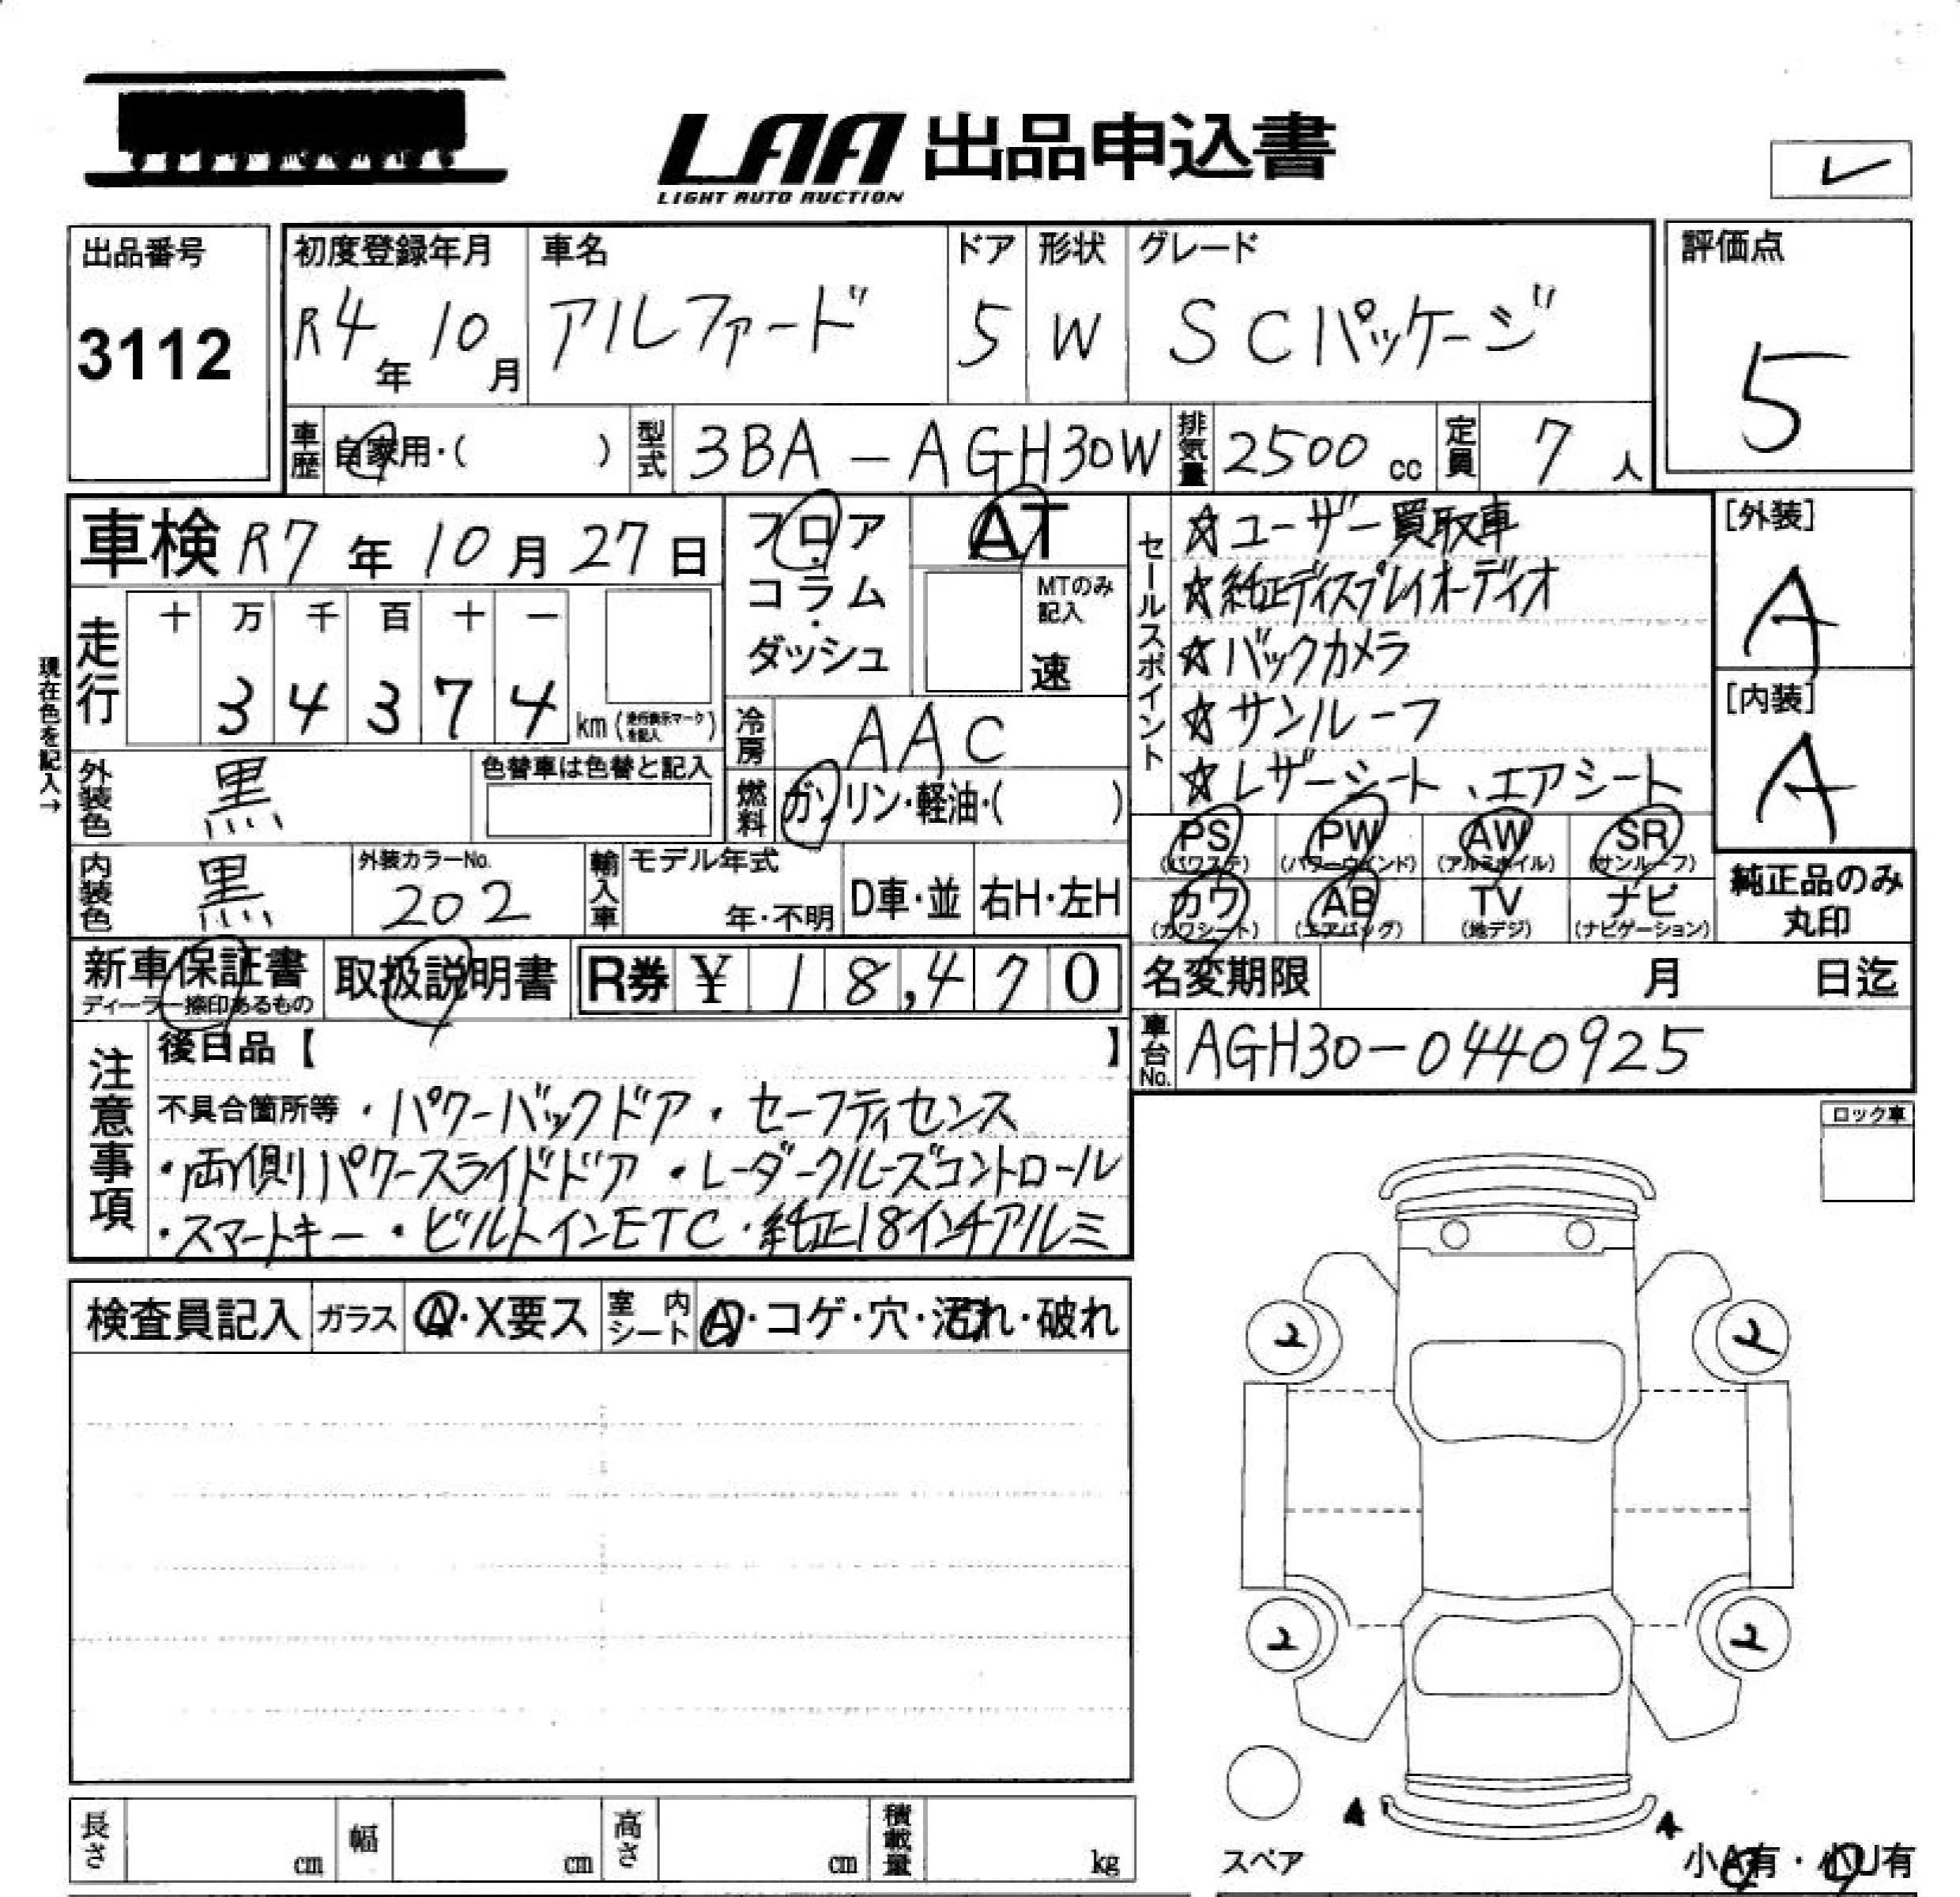 LAA 出品申込書
LIGHT AUTO AUCTION
出品番号
3112
初度登録年月
R4年10月
車名
アルファード
ドア
5
形状
W
グレード
SCパッケージ
評価点
5
車歴 自家用・( )
型式 3BA-AGH30W
排気量 2500 cc
定員 7 人
車検 R7年10月27日
フロア・コラム・ダッシュ
AT
MTのみ記入
速
走行
十 万 千 百 十 一
3 4 3 7 4 km (走行表示マークを記入)
現在色を記入→
冷房 AAC
外装色 黒
色替車は色替と記入
燃料 ガソリン・軽油・( )
内装色 黒
外装カラーNo.
202
輸入車 モデル年式
年・不明
D車・並
右H・左H
セールスポイント
☆ユーザー買取車
☆純正ディスプレイオーディオ
☆バックカメラ
☆サンルーフ
☆レザーシート、エアシート
[外装]
A
[内装]
A
PS (パワステ) PW (パワーウインド) AW (アルミホイル) SR (サンルーフ)
カワ (カワシート) AB (エアバッグ) TV (地デジ) ナビ (ナビゲーション)
純正品のみ
丸印
新車保証書
ディーラー捺印あるもの
取扱説明書
R券 ¥ 18,470
名変期限 月 日迄
車台No. AGH30-0440925
注意事項
後日品【 】
不具合箇所等 ・パワーバックドア ・セーフティセンス
・両側パワースライドドア ・レーダークルーズコントロール
・スマートキー ・ビルトインETC ・純正18インチアルミ
ロック車
検査員記入 ガラス A・X要ス 室内シート A・コゲ・穴・汚れ・破れ
2 2
2 2
A A
スペア
小A有・小U有
長さ cm 幅 cm 高さ cm 積載量 kg